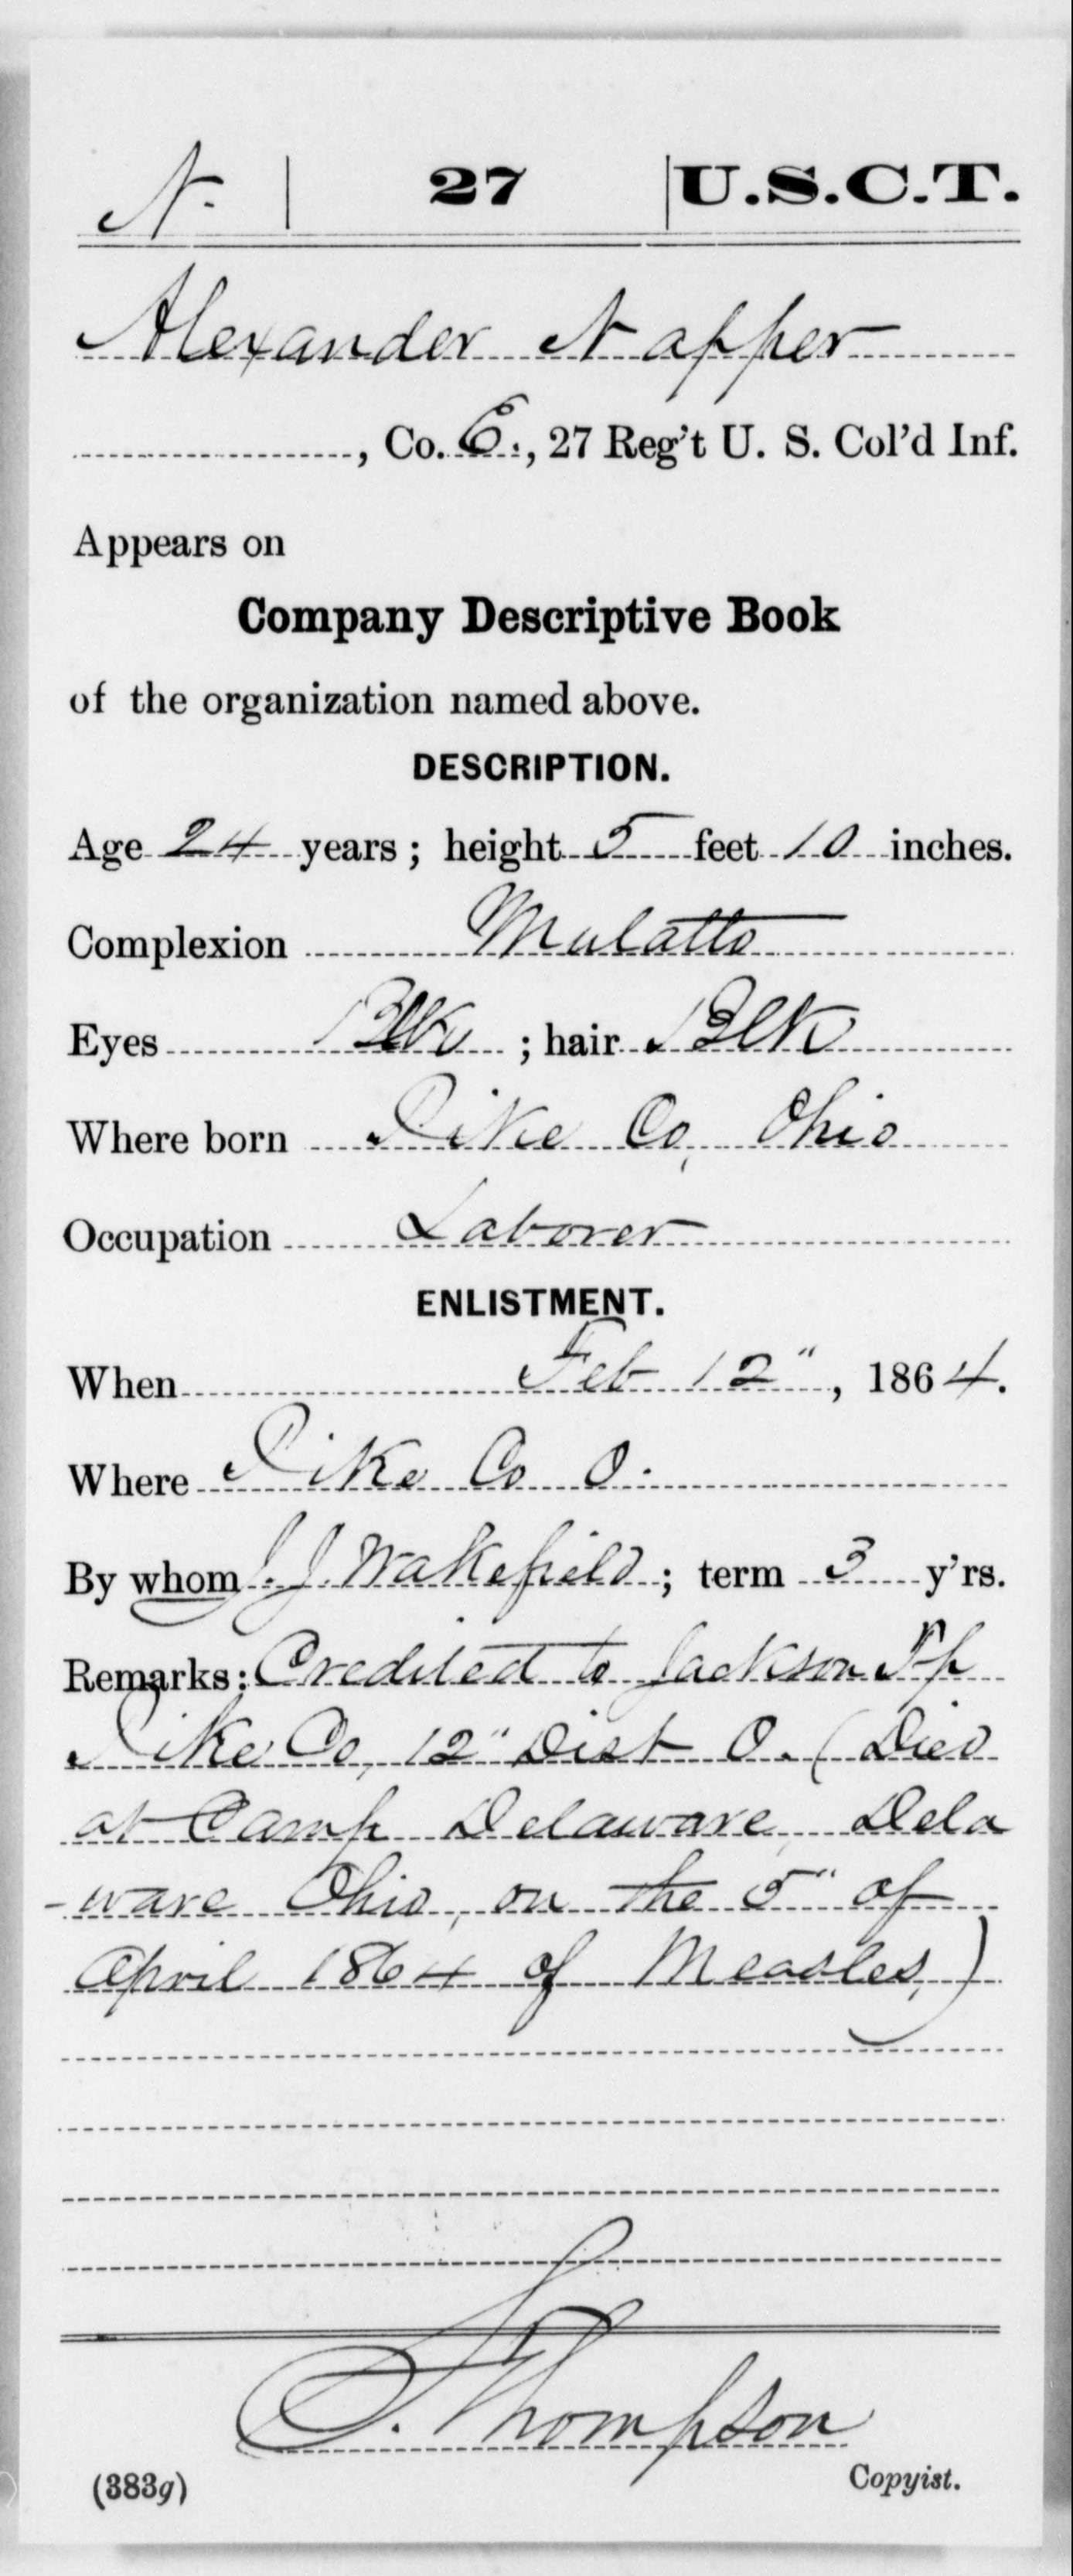 N. 27 U.S.C.T.
Alexander Napper
, Co. E., 27 Reg't U. S. Col'd Inf.
Appears on
Company Descriptive Book
of the organization named above.
DESCRIPTION.
Age 24 years; height 5 feet 10 inches.
Complexion Mulatto
Eyes Blk; hair Blk
Where born Pike Co, Ohio
Occupation Laborer
ENLISTMENT.
When Feb 12", 1864.
Where Pike Co O.
By whom J. J. Wakefield; term 3 y'rs.
Remarks: Credited to Jackson Tp
Pike Co, 12" Dist O. (Died
at Camp Delaware, Dela
-ware Ohio, on the 5" of
April 1864 of Measles,)
S. Thompson
(383g) Copyist.